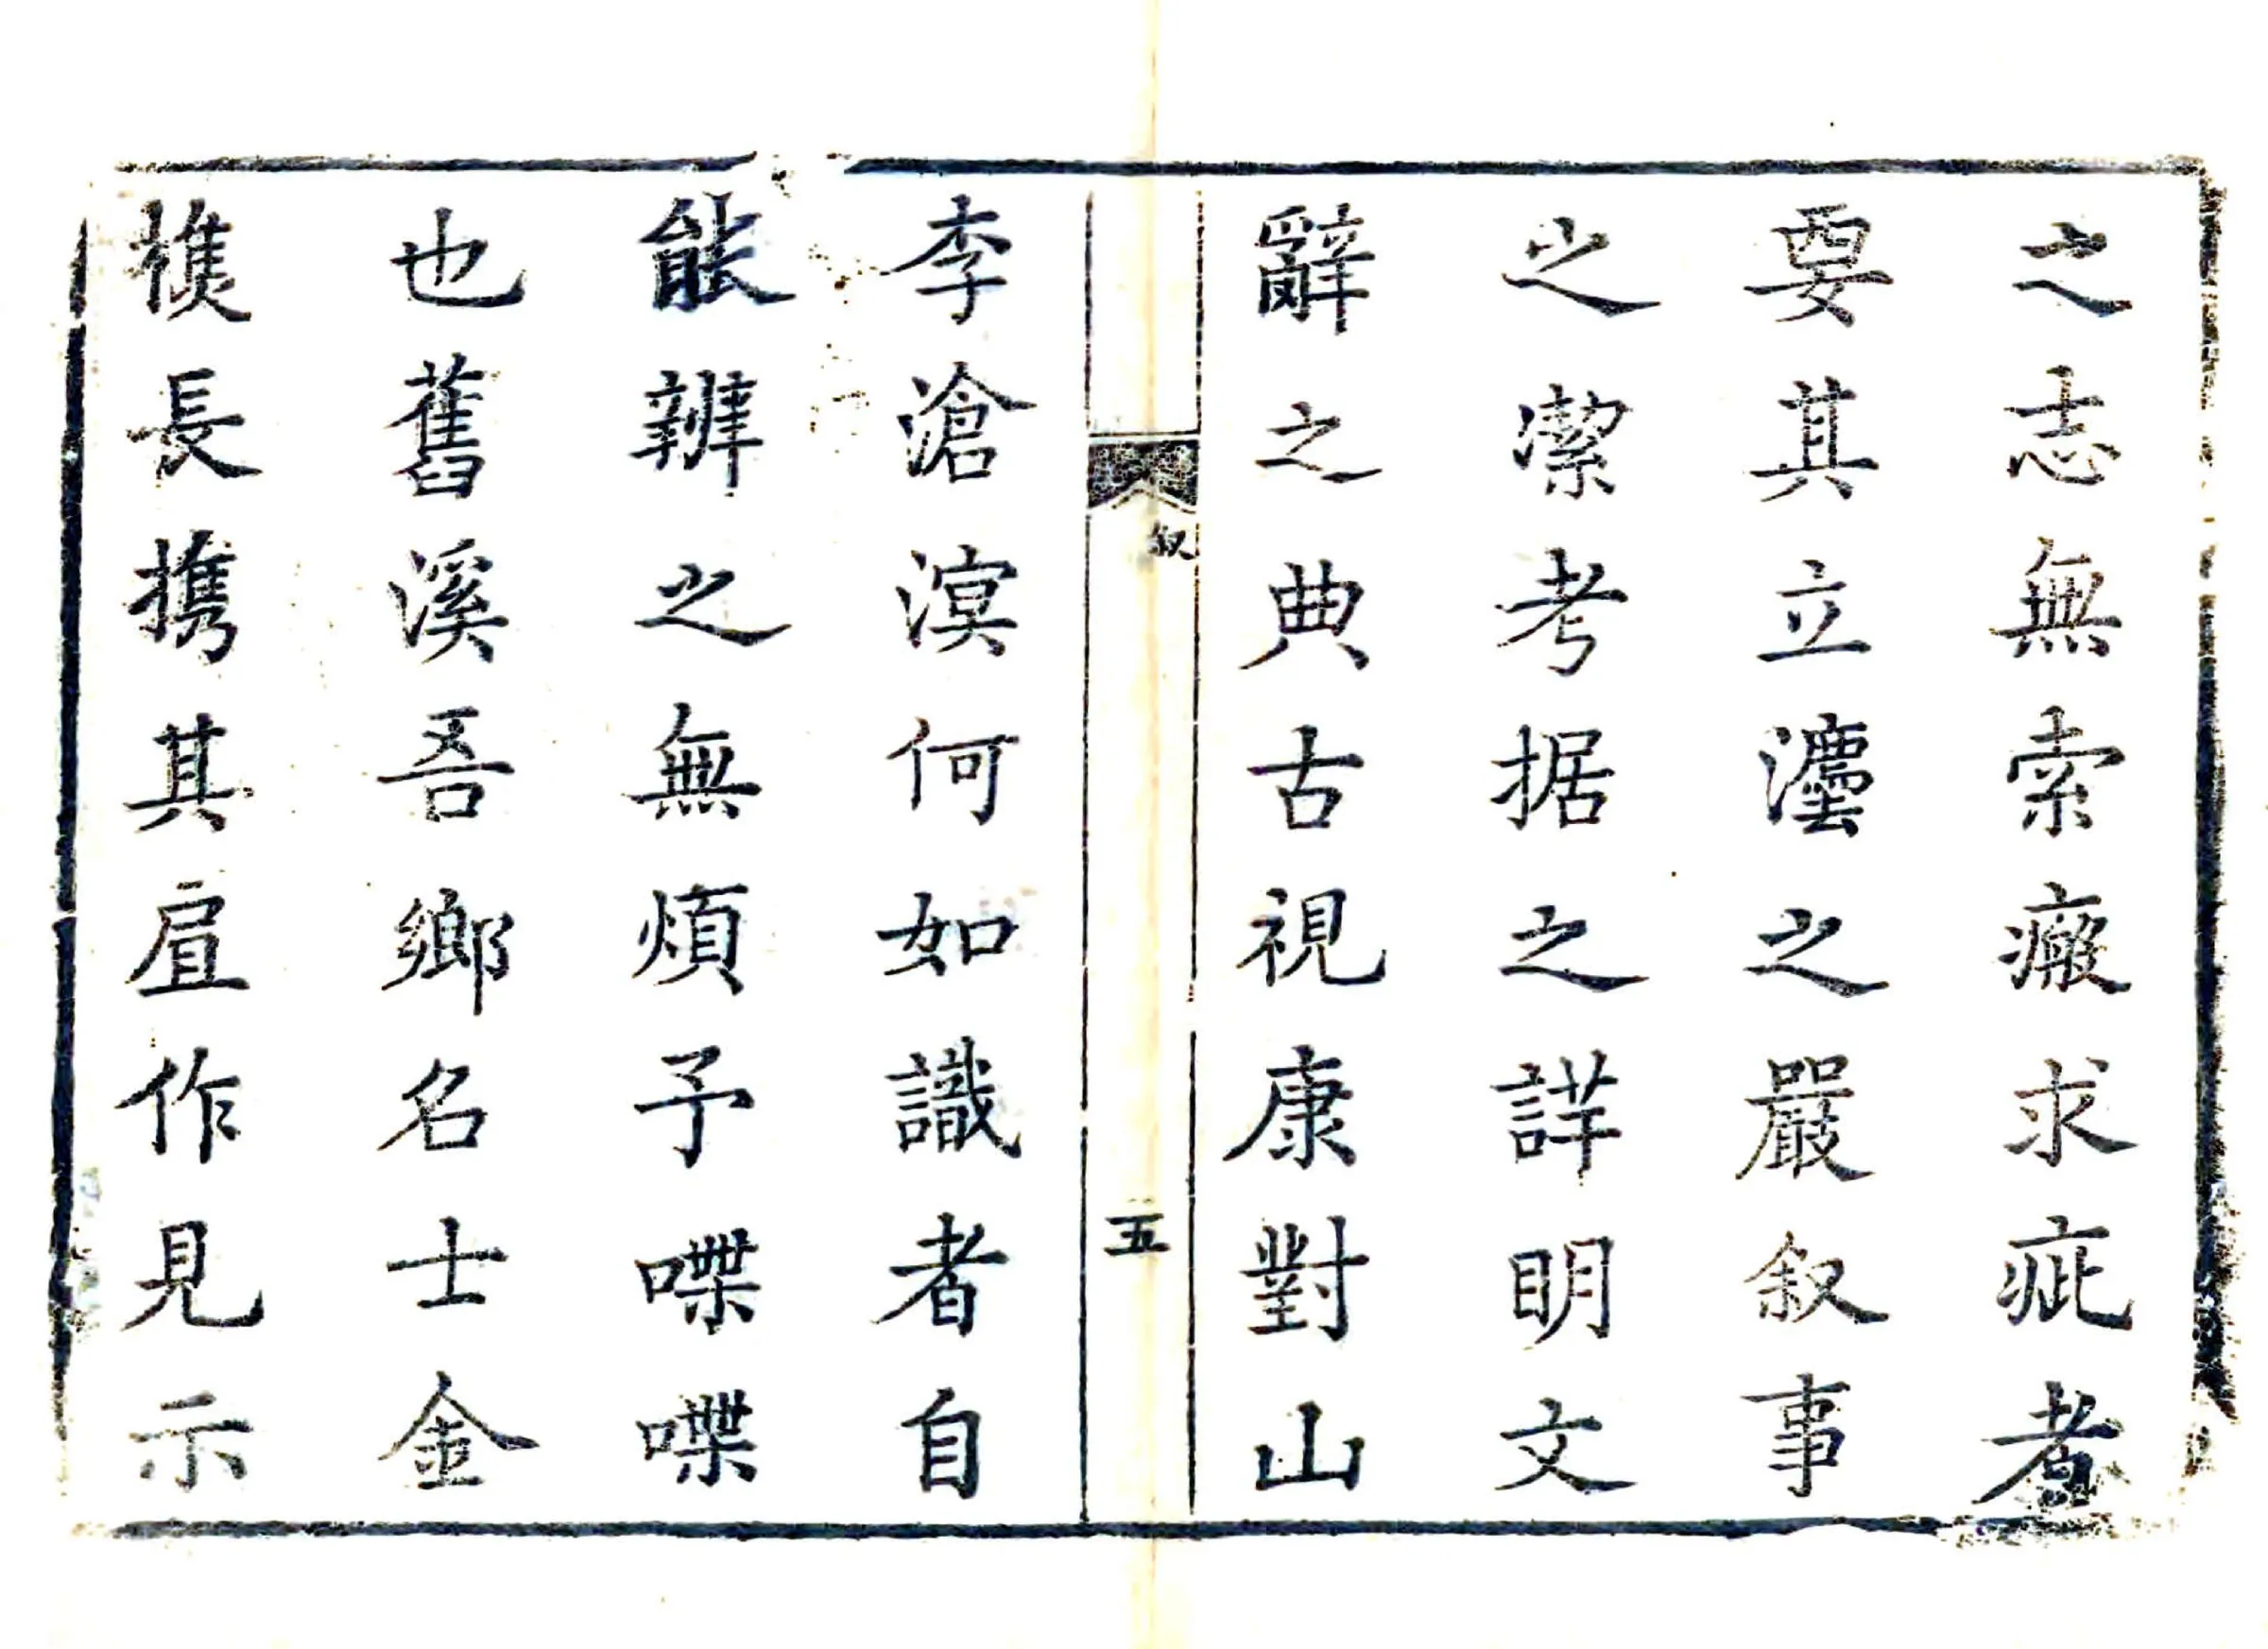 之志無索瘢求疵者
要其立灋之嚴叙事
之潔考据之詳眀文
辭之典古視康對山
叙
五
李滄溟何如識者自
能辨之無煩予喋喋
也舊溪吾鄉名士金
樵長携其作見示